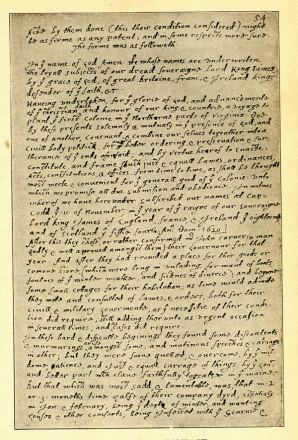 54
by them done (this their condition considered) might
be as firme as any patent, and in some respects more sure.
The forme was as followeth.
In yᵉ name of god Amen. We whose names are underwriten,
the loyall subjects of our dread soveraigne Lord King James,
by yᵉ grace of god, of great Britaine, franc, & Ireland king,
defender of yᵉ faith, &c
Haveing undertaken, for yᵉ glorie of god, and advancemente
of yᵉ christian and honour of our king & countrie, a voyage to
plant yᵉ first colonie in yᵉ Northerne parts of Virginia. Doe
by these presents solemnly & mutualy in yᵉ presence of god, and
one of another, covenant, & combine our selves togeather into a
civill body politick, for our better ordering, & preservation & fur-
therance of yᵉ ends aforesaid; and by vertue hearof to enacte,
constitute, and frame such just & equall lawes, ordinances,
Acts, constitutions, & offices, from time to time, as shall be thought
most meete & convenient for yᵉ generall good of yᵉ colonie: unto
which we promise all due submission and obedience. In witnes
wherof we have hereunder subscribed our names at Cap-
Codd yᵉ .11. of November, in yᵉ year of yᵉ raigne of our soveraigne
Lord king James of England, franc, & Ireland yᵉ eighteenth
and of Scotland yᵉ fiftie fourth. An͞o: Dom. 1620.
After this they chose, or rather confirmed mʳ John Carver (a man
godly & well approved amongst them) their Governour for that
year. And after they had provided a place for their goods, or
comone store, (which were long in unlading for want of boats,
foulnes of yᵉ winter weather, and sicknes of diverce) and begune
some small cottages for their habitation; as time would admitte
they mette and consulted of lawes, & orders, both for their
civill & military Govermente, as yᵉ necessitie of their condi-
tion did require, still adding therunto as urgent occasion
in severall times, and cases did require.
In these hard & difficulte beginings they found some discontents
& murmurings arise amongst some, and mutinous speeches & cariags
in other; but they were soone quelled, & overcome, by yᵉ wis-
dome, patience, and just & equall carrage of things, by yᵉ Govʳ
and better part wᶜʰ clave faithfully togeather in yᵉ maine.
But that which was most sadd, & lamentable, was, that in 2.
or 3. moneths time halfe of their company dyed, espetialy
in Jan: & february, being yᵉ depth of winter, and wanting
houses & other comforts; being infected with yᵉ scurvie &